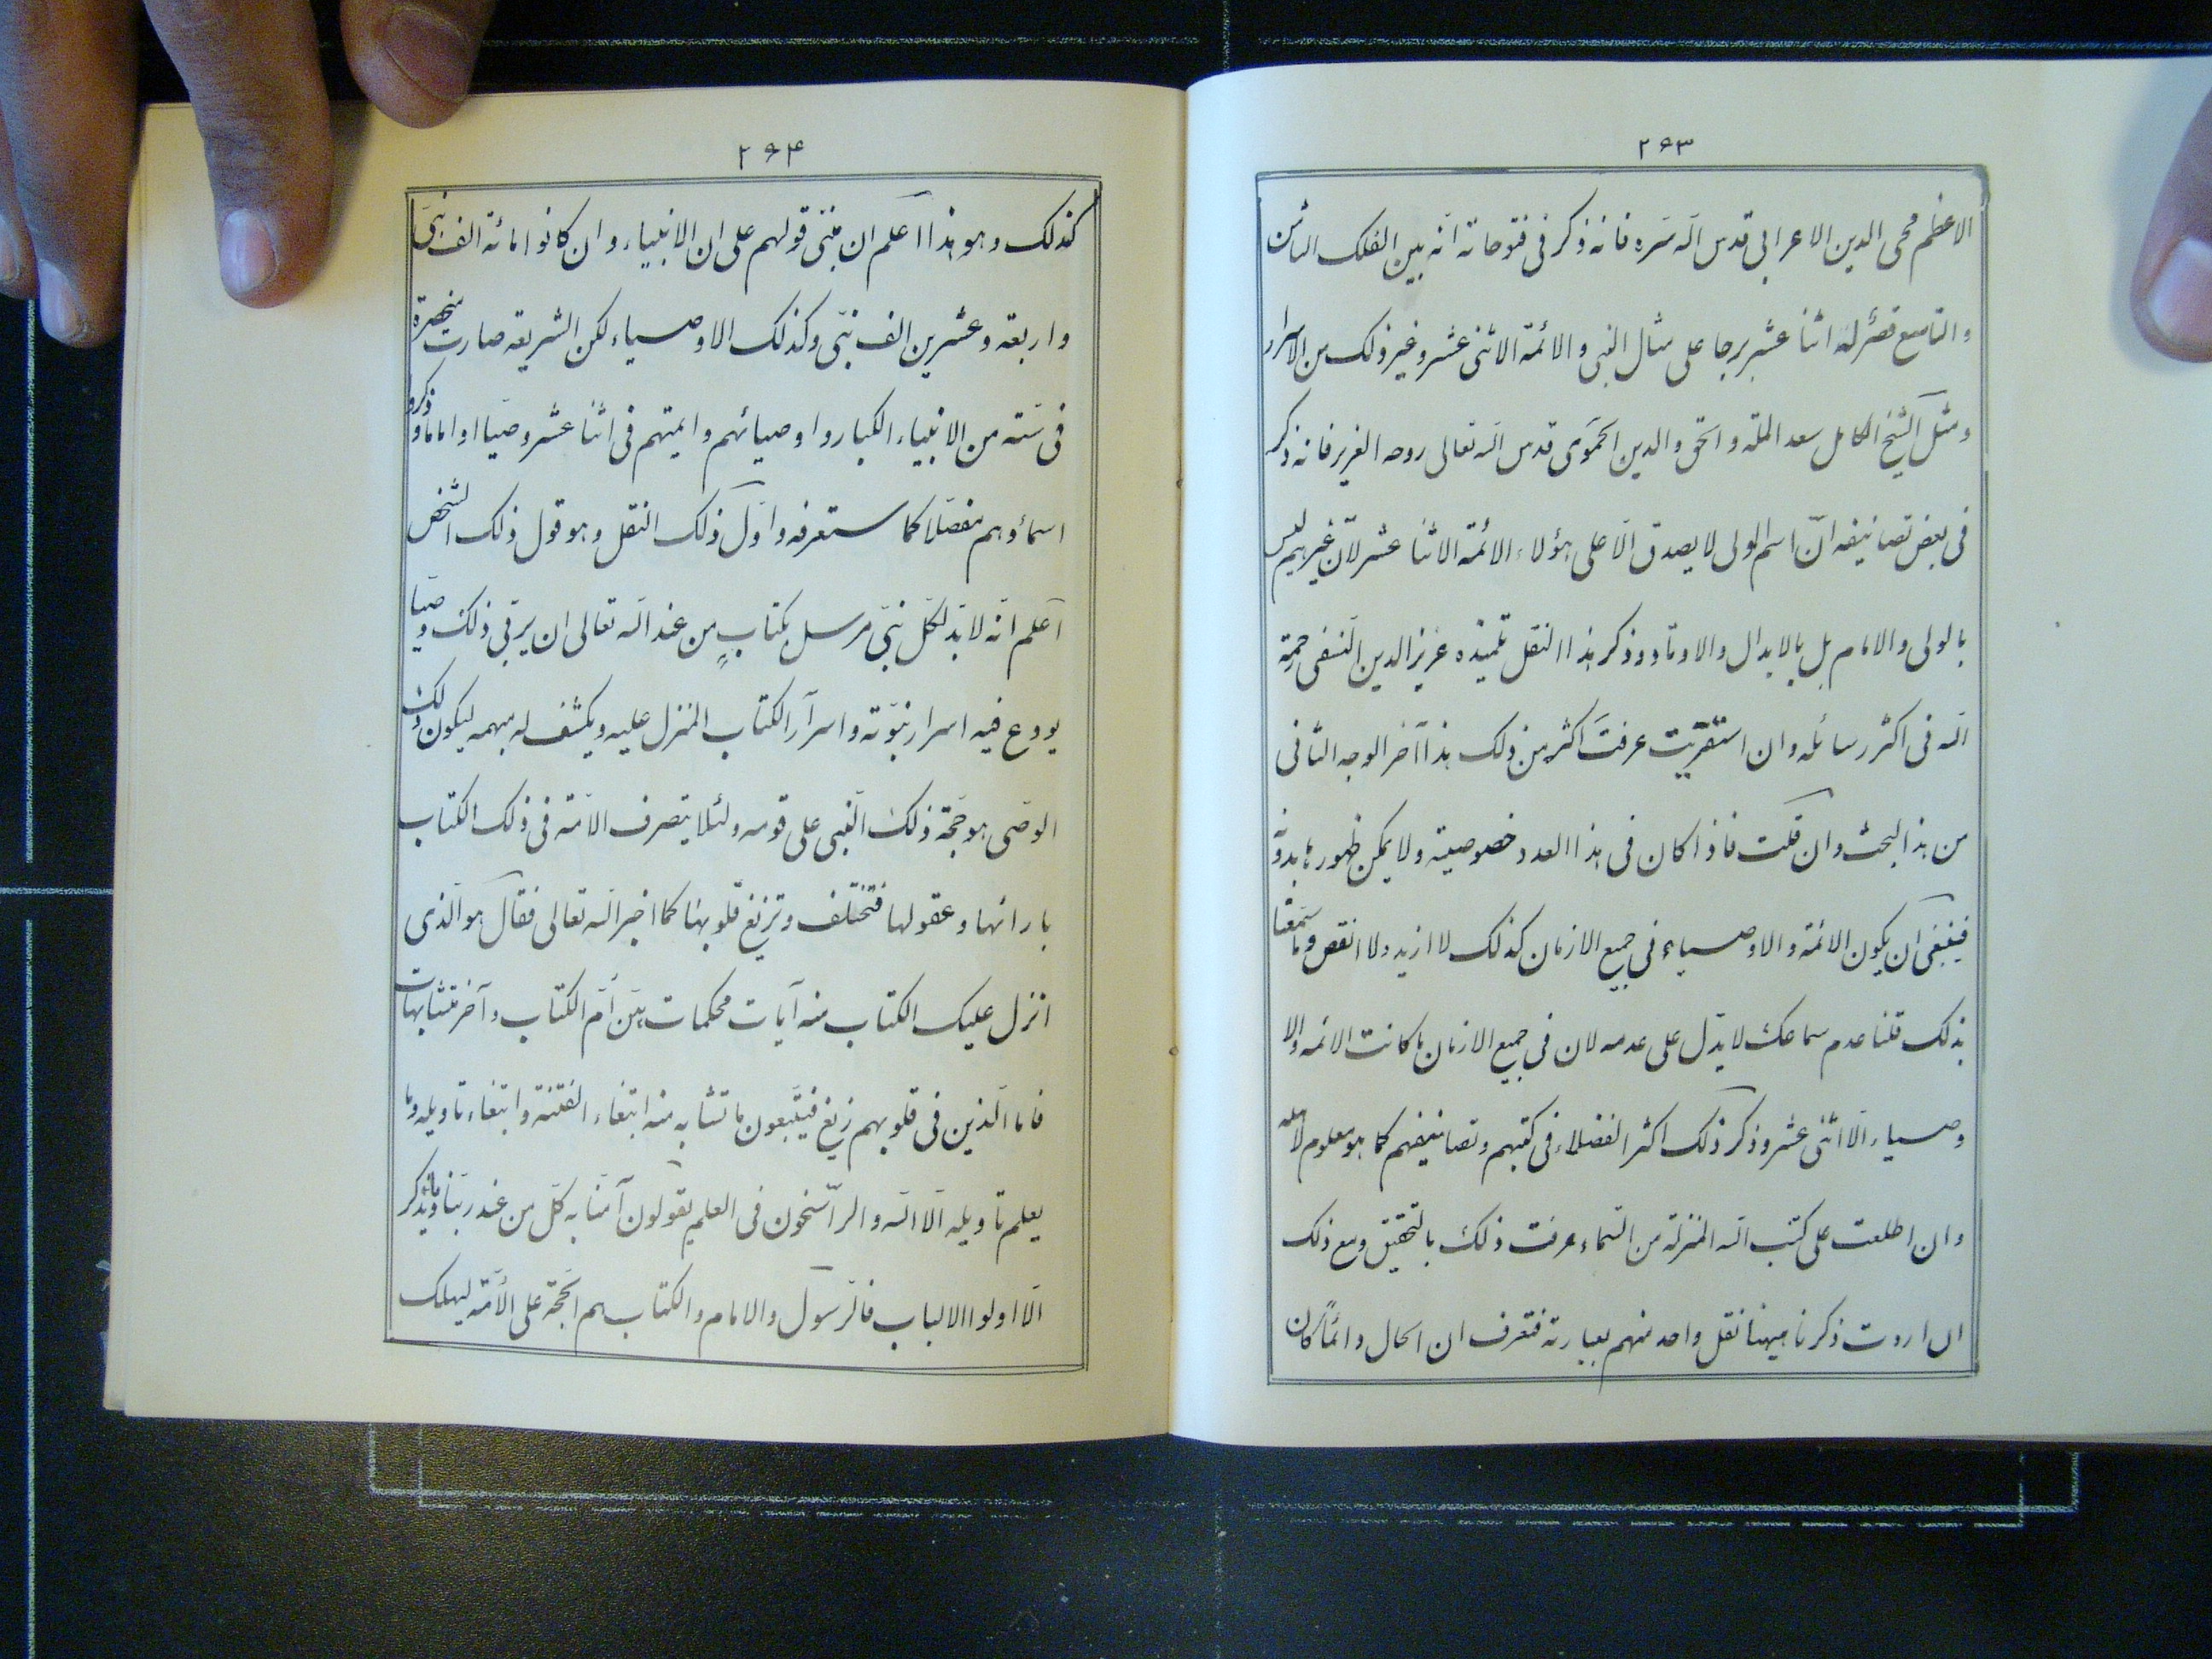 ۲۶۳
الاعظم محی الدین الاعرابی قدس الله سره فانه ذکر فی فتوحاته انه بین الفلک الثامن
والتاسع قصر له اثنا عشر برجا علی مثال النبی والائمة الاثنی عشر وغیر ذلک من الاسرار
ومثل الشیخ الکامل سعد الملة والحق والدین الحموی قدس الله تعالی روحه العزیز فانه ذکر
فی بعض تصانیفه انّ اسم الولی لا یصدق الّا علی هؤلاء الائمة الاثنا عشر لانّ غیرهم لیس
بالولی والامام بل بالابدال والاوتاد وذکر هذا النقل تلمیذه عزیز الدین النسفی رحمة
الله فی اکثر رسائله وان استقریت عرفت اکثر من ذلک هذا آخر الوجه الثانی
من هذا البحث وان قلت فاذا کان فی هذا العدد خصوصیته ولا یمکن ظهورها بدون
فینبغی ان یکون الائمة والاوصیاء فی جمیع الازمان کذلک لا ازید ولا انقص وما سمعنا
بذلک قلنا عدم سماعک لا یدل علی عدمه لان فی جمیع الازمان ما کانت الائمه والا
وصیاء الّا اثنی عشر وذکر ذلک اکثر الفضلاء فی کتبهم وتصانیفهم کما هو معلوم لاهله
وان اطلعت علی کتب الله المنزلة من السماء عرفت ذلک بالتحقیق ومع ذلک
ان اردت ذکرنا هیهنا نقل واحد منهم بعبارته فتعرف ان الحال دائماً کان
۲۶۴
کذلک وهو هذا اعلم ان مبنی قولهم علی ان الانبیاء وان کانوا مائة الف نبی
واربعة وعشرین الف نبی وکذلک الاوصیاء لکن الشریعه صارت منحصرة
فی ستّه من الانبیاء الکبار واوصیائهم وایمتهم فی اثنا عشر وصیاً او اماماً وذکروا
اسماؤهم مفصّلا کما ستعرفه واوّل ذلک النقل وهو قول ذلک الشخص
اعلم انه لا بدّ لکل نبی مرسل بکتابٍ من عند الله تعالی ان یرقی ذلک وصیاً
یودع فیه اسرار نبوّته واسرار الکتاب المنزل علیه ویکشف له مبهمه لیکون ذلک
الوصی هو حجة ذلک النبی علی قومه ولئلا یتصرف الامّة فی ذلک الکتاب
بارائها وعقولها فتختلف وتزیغ قلوبها کما اخبر الله تعالی فقال هو الّذی
انزل علیک الکتاب منه آیات محکمات هنّ أمّ الکتاب وآخر متشابهات
فاما الّذین فی قلوبهم زیغ فیتّبعون ما تشابه منه ابتغاء الفتنة وابتغاء تاویله وما
یعلم تاویله الّا الله والراسخون فی العلم یقولون آمنّا به کلّ من عند ربّنا وما یذکر
الّا اولوا الالباب فالرسول والامام والکتاب هم الحجّة علی الأمّة لیهلک